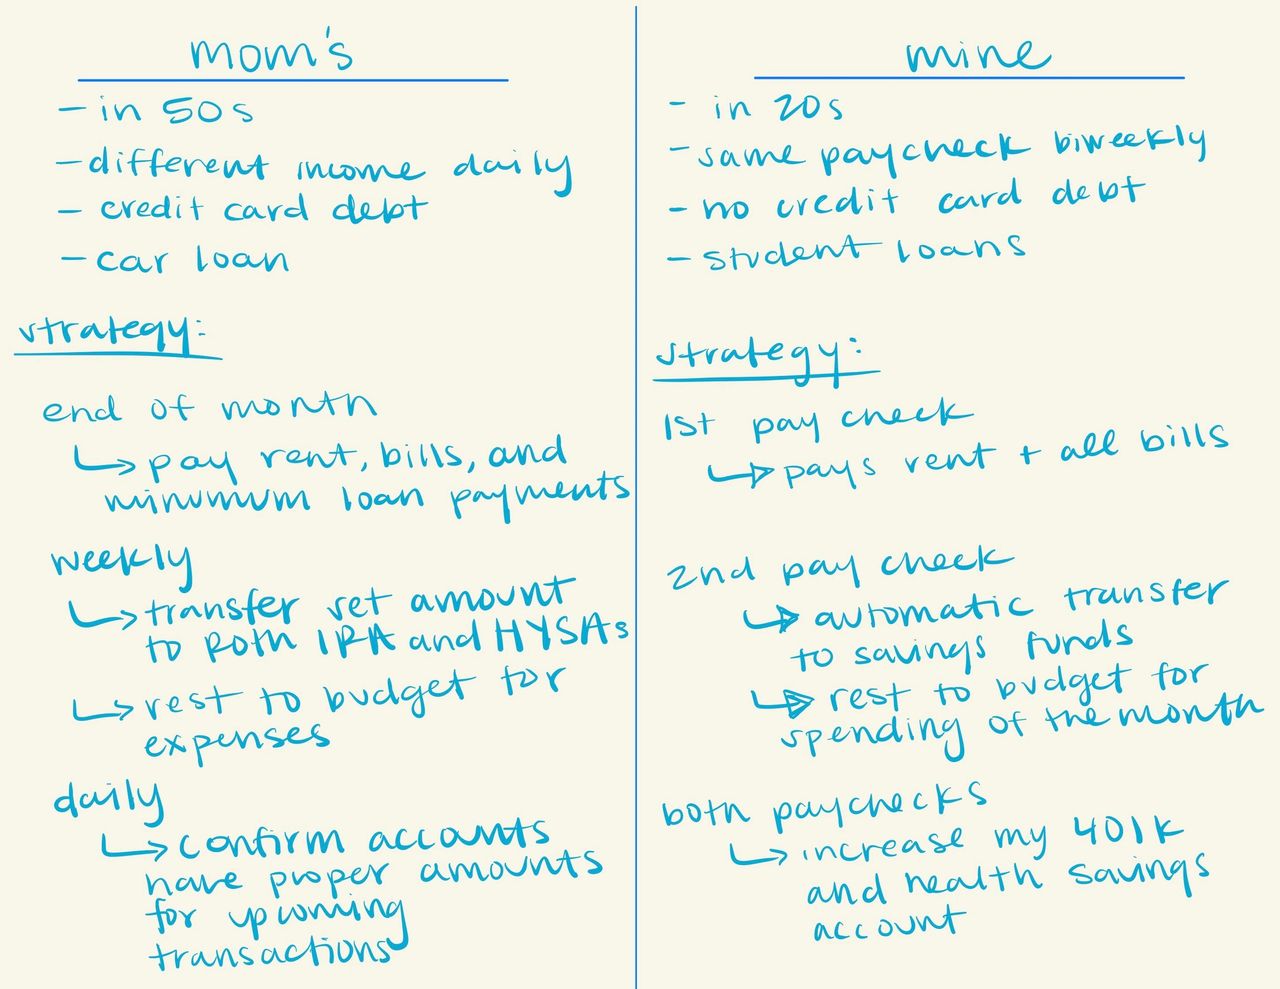 mom's
- in 50s
- different income daily
- credit card debt
- car loan
strategy:
end of month
↳ pay rent, bills, and
minumum loan payments
weekly
↳ transfer set amount
to Roth IRA and HYSAs
↳ rest to budget for
expenses
daily
↳ confirm accounts
have proper amounts
for upcoming
transactions
mine
- in 20s
- same paycheck biweekly
- no credit card debt
- student loans
strategy:
1st pay check
↳ pays rent + all bills
2nd pay check
↳ automatic transfer
to savings funds
↳ rest to budget for
spending of the month
both paychecks
↳ increase my 401k
and health savings
account